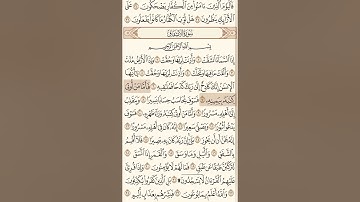 فَٱلْيَوْمَ ٱلَّذِينَ ءَامَنُوا۟ مِنَ ٱلْكُفَّارِ يَضْحَكُونَ ٣٤ عَلَى
ٱلْأَرَآئِكِ يَنظُرُونَ ٣٥ هَلْ ثُوِّبَ ٱلْكُفَّارُ مَا كَانُوا۟ يَفْعَلُونَ ٣٦
سُورَةُ الانشِقَاقِ
بِسْمِ ٱللَّهِ ٱلرَّحْمَٰنِ ٱلرَّحِيمِ
إِذَا ٱلسَّمَآءُ ٱنشَقَّتْ ١ وَأَذِنَتْ لِرَبِّهَا وَحُقَّتْ ٢ وَإِذَا ٱلْأَرْضُ مُدَّتْ
٣ وَأَلْقَتْ مَا فِيهَا وَتَخَلَّتْ ٤ وَأَذِنَتْ لِرَبِّهَا وَحُقَّتْ ٥ يَٰٓأَيُّهَا
ٱلْإِنسَٰنُ إِنَّكَ كَادِحٌ إِلَىٰ رَبِّكَ كَدْحًا فَمُلَٰقِيهِ ٦ فَأَمَّا مَنْ أُوتِىَ
كِتَٰبَهُۥ بِيَمِينِهِۦ ٧ فَسَوْفَ يُحَاسَبُ حِسَابًا يَسِيرًا ٨ وَيَنقَلِبُ
إِلَىٰٓ أَهْلِهِۦ مَسْرُورًا ٩ وَأَمَّا مَنْ أُوتِىَ كِتَٰبَهُۥ وَرَآءَ ظَهْرِهِۦ ١٠ فَسَوْفَ
يَدْعُوا۟ ثُبُورًا ١١ وَيَصْلَىٰ سَعِيرًا ١٢ إِنَّهُۥ كَانَ فِىٓ أَهْلِهِۦ مَسْرُورًا ١٣
إِنَّهُۥ ظَنَّ أَن لَّن يَحُورَ ١٤ بَلَىٰٓ إِنَّ رَبَّهُۥ كَانَ بِهِۦ بَصِيرًا ١٥ فَلَآ أُقْسِمُ
بِٱلشَّفَقِ ١٦ وَٱلَّيْلِ وَمَا وَسَقَ ١٧ وَٱلْقَمَرِ إِذَا ٱتَّسَقَ ١٨
لَتَرْكَبُنَّ طَبَقًا عَن طَبَقٍ ١٩ فَمَا لَهُمْ لَا يُؤْمِنُونَ ٢٠ وَإِذَا قُرِئَ
عَلَيْهِمُ ٱلْقُرْءَانُ لَا يَسْجُدُونَ ۩ ٢١ بَلِ ٱلَّذِينَ كَفَرُوا۟ يُكَذِّبُونَ ٢٢
وَٱللَّهُ أَعْلَمُ بِمَا يُوعُونَ ٢٣ فَبَشِّرْهُم بِعَذَابٍ أَلِيمٍ ٢٤